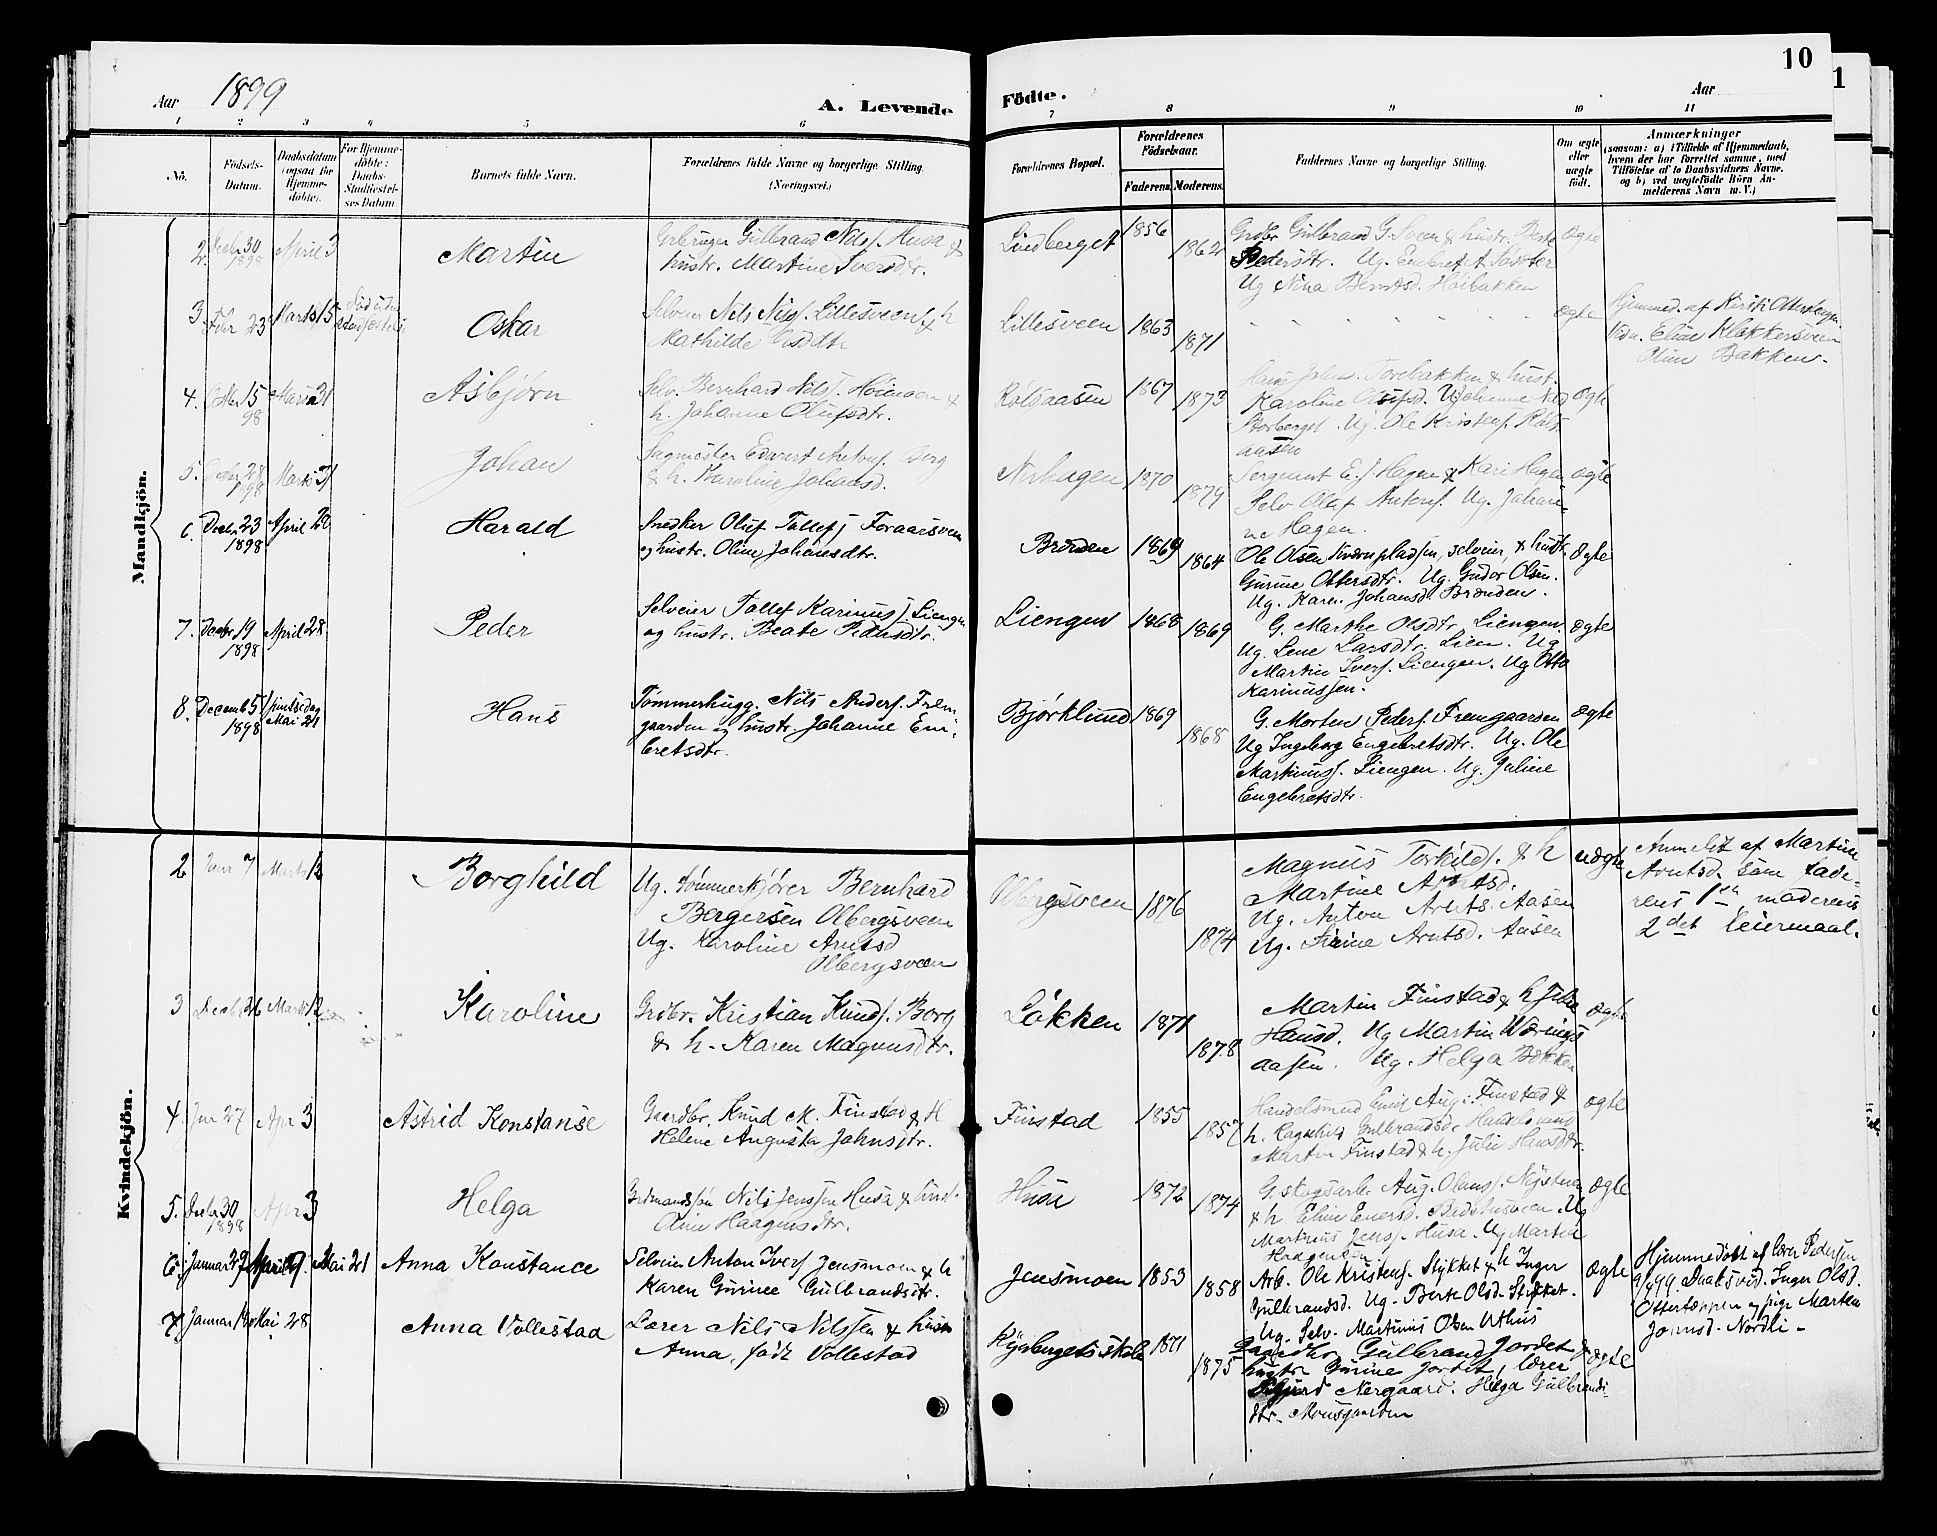 Aar 1899
A. Levende Födte.
Aar
10
1
1 2 3 4 5 6 7 8 9 10 11
No.
Födsels-
Datum.
Daabsdatum
(ogsaa for
Hjemme-
döbte).
For Hjemme-
döbte:
Daabs-
Stadfæstel-
ses Datum
Barnets fulde Navn.
Forældrenes fulde Navne og borgerlige Stilling.
(Næringsvei.)
Forældrenes Bopæl.
Forældrenes
Födselsaar.
Faderens. Moderens.
Faddernes Navne og borgerlige Stilling.
Om ægte
eller
uægte
födt.
Anmærkninger
(saasom: a) i Tilfælde af Hjemmedaab,
hvem der har forrettet samme, med
Tilföielse af to Daabsvidners Navne,
og b) ved uægtefödte Börn An-
melderens Navn m. V.)
Mandkjön.
2. Decbr 30
1898
April 3
Martin
Grbruger Gulbrand Nilsf. Husa &
hustr. Martine Iversdtr.
Lindberget
1856
1862
Grdbr. Gulbrand G. Sveen & hustr. Berte
Pedersdtr. Ug. Embret
Ug Nina Berntsd. Höibakken
ægte
3. Febr 23
Marts 15
Död uden
stadfæstelse
Oskar
Selveier Nils Lillesveen & h
Mathilde
Lillesveen
1863
1871
ægte
Hjemmed. af
Vidn. Eline Klokkersveen
Oline Bakken.
4. Octbr 15
98
Marts 31
Asbjørn
Selv. Bernhard Nilsf. Höimoen &
h. Johanne Olufsdtr.
Rölsaasen
1867
1873
Torebakken & hust.
Karoline Olufsd. Ug Johanne
Storberget. Ug. Ole Kristenf. Röls
aasen
ægte
5. Decbr 28
1898
Marts 31
Johan
Sagmester Edvart Antonf. Berg
& h. Karoline Johansd.
Nerhagen
1870
1879
Sergeant E. J Hagen & Kari Hagen
Selv Oluf Antonf. Ug. Johan-
ne Hagen.
ægte
6. Decbr. 23
1898
April 20
Harald
Snedker Oluf Tollefs Foraarsveen
og hustr. Oline Johansdtr.
Brænden
1869
1864
Ole Olsen Kværnpladsen, selveier, & hustr.
Gurine Ottersdtr. Ug. Gudor Olsen.
Ug. Karen Johansd. Brænden.
ægte
7. Decbr 19
1898
April 28
Peder
Selveier Tollef Karinusf. Liengen
og hustr. Beate Pedersdtr.
Liengen
1868
1869
G. Marthe Olsdtr. Liengen.
Ug. Lene Larsdtr. Lien. Ug
Martin Iversf. Liengen. Ug Otto
Karinussen.
ægte
8. Decemb 5
1898
Pintsedag
Mai 21
Hans
Tömmerhugg. Nils Andersf. Frem-
gaarden og hustr. Johanne Em-
bretsdtr.
Bjørklund
1869
1868
G. Morten Pedersf. Fremgaarden
Ug Ingeborg Engebretsdtr. Ug. Ole
Martinusf. Liengen. Ug. Juline
Engebretsdtr.
ægte
Kvindekjön.
2 Janr 7
Marts 12
Borghild
Ug. Tømmerkjører Bernhard
Bergersen Olbergsveen
Ug. Karoline Arntsd
Olbergsveen
Olbergsveen
1876
1874
Magnus Torkildsf. & h
Martine Arntsd.
Ug. Anton Arnts. Aasen
Ug. Arntsd. Aasen
uægte
Anmeldt af Martine
Arntsd. som fade-
rens 1ste moderens
2det leiermaal.
3 Decbr 26
Marts 12
Karoline
Grdbr. Kristian Knudsf. Borg
& h. Karen Magnusdtr.
Løkken
1871
1878
Martin Finstad & h Julie
Hansd. Ug Martin Værnes
aasen. Ug. Helga Bækken
ægte
4 Jan 27
Apr 3
Astrid Konstanse
Gaardbr. Knud M. Finstad & H
Helene Augusta Johnsdtr.
Finstad
1855
1857
Handelsmand Emil Aug. Finstad &
h. Ragnhild Gulbrandsd. Handelsmand
Martin Finstad & h. Julie Hansdtr.
ægte
5. Decbr 30
1898
Apr 3
Helga
Nils Jenssen Husa & hust.
Oline Haagensdtr.
Husa
1872
1874
G. stagsarb. Aug. Olausf. Nystuen
& h. Eline Enersd. Ug
Martinus Jensf. Husa. Ug Martin
Haagensen
ægte
6. Januar 27
April
Mai 21
Anna Konstance
Selveier Anton Iversf Jensmoen & h
Karen Gurinee Gulbrandsdtr.
Jensmoen
1853
1858
Arb. Ole Kristenf. Stykket & h Inger
Gulbrandsd. Ug. Berte Olsd. Stykket.
Ug. Selv. Martinus Olsen Uthus
ægte
Hjemmedøbt af lærer Pedersen
9/4 99. Daabsvid. Inger Olsd.
Ottertoppen og pige Marten
Jonsd. Nordli.
7 Januar
Mai 28
Anna Vollestad
Lærer Nils Nilssen & hustr
Anna, født Vollestad
Kynbergets skole
1871
1875
Gaardbr. Gulbrand Jordet &
hustr Gurine Jordet, lærer
Sigurd Nergaard. Helga Gulbrands-
dtr. Monsgaarden
ægte